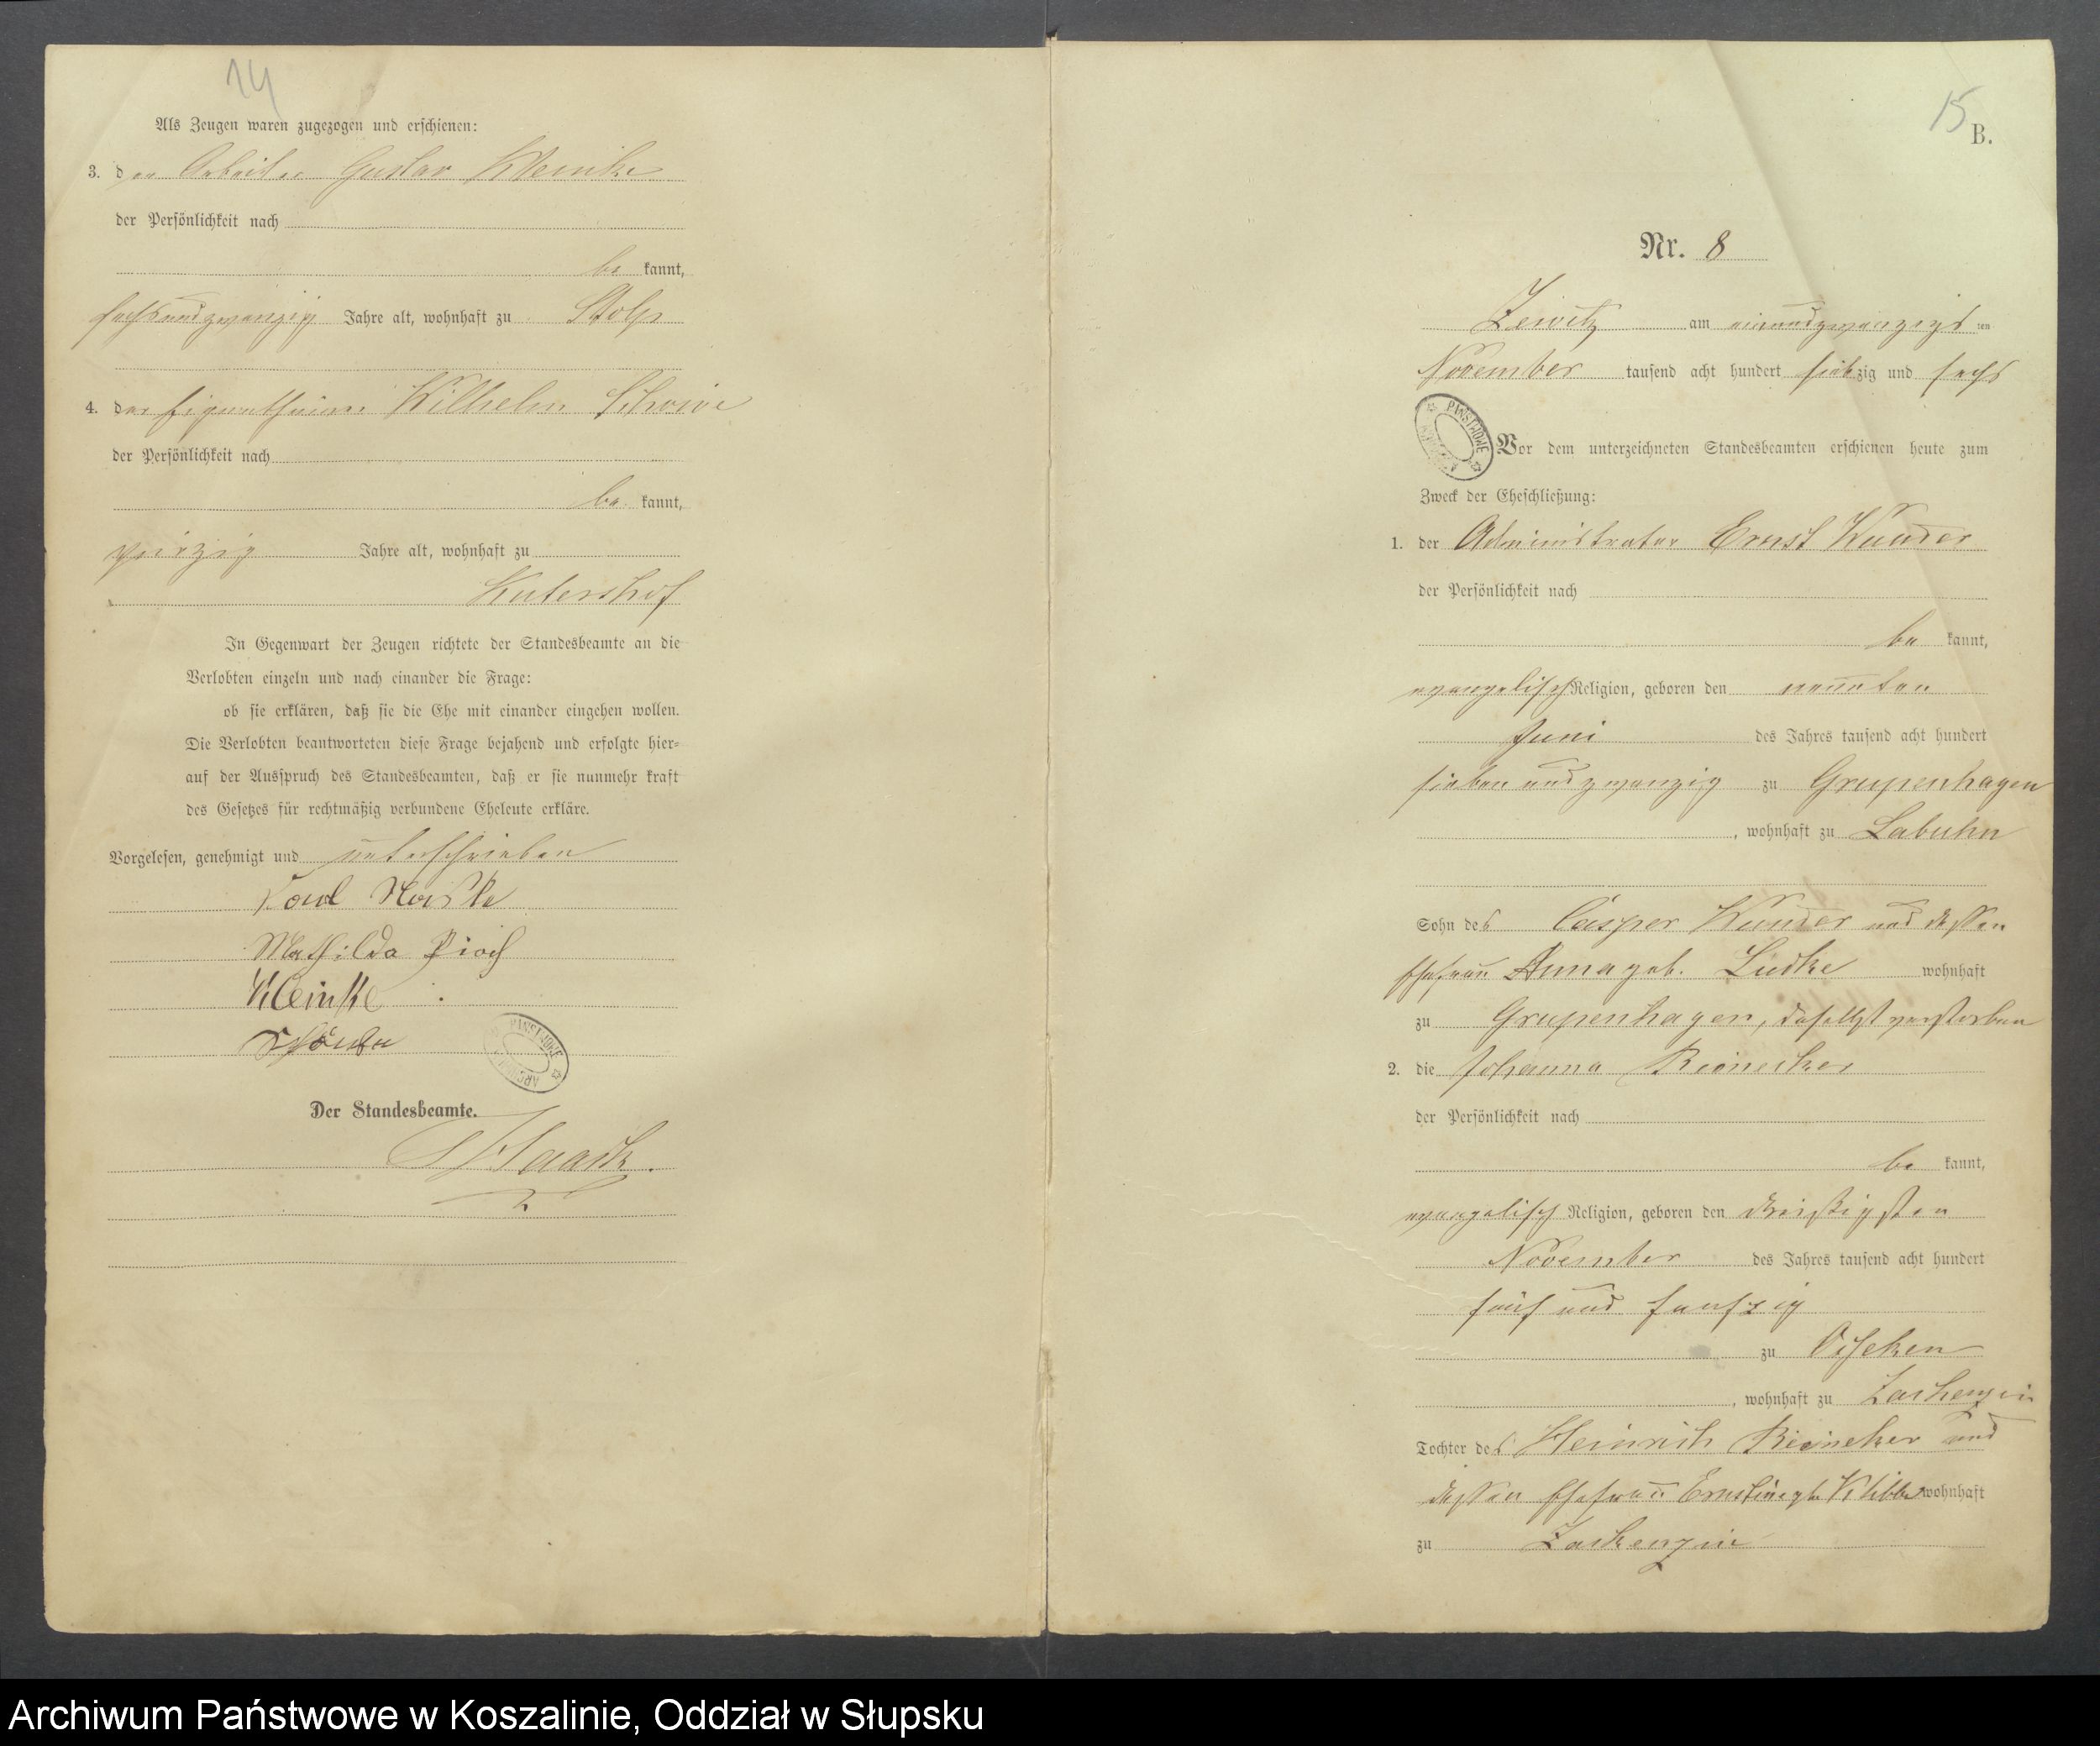 14
Als Zeugen waren zugezogen und erschienen:
3. der Arbeiter Gustav Kleinke
der Persönlichkeit nach
be kannt,
sechsundzwanzig Jahre alt, wohnhaft zu Stolp
4. der Eigenthümer Wilhelm
der Persönlichkeit nach
be kannt,
vierzig Jahre alt, wohnhaft zu
Kutershof
In Gegenwart der Zeugen richtete der Standesbeamte an die
Verlobten einzeln und nach einander die Frage:
ob sie erklären, daß sie die Ehe mit einander eingehen wollen.
Die Verlobten beantworteten diese Frage bejahend und erfolgte hier-
auf der Ausspruch des Standesbeamten, daß er sie nunmehr kraft
des Gesetzes für rechtmäßig verbundene Eheleute erkläre.
Vorgelesen, genehmigt und unterschrieben
Mathilda Pioch
Kleinke
Der Standesbeamte.
15
B.
Nr. 8
Zewitz am einundzwanzigsten
November tausend acht hundert siebzig und sechs
Vor dem unterzeichneten Standesbeamten erschienen heute zum
Zweck der Eheschließung:
1. der Administrator Ernst Kunder
der Persönlichkeit nach
be kannt,
evangelisch Religion, geboren den neunten
Juni des Jahres tausend acht hundert
sieben und zwanzig zu Grupenhagen
, wohnhaft zu Labuhn
Sohn des Casper Kunder und dessen
Ehefrau Anna geb. Lüdke wohnhaft
zu Grupenhagen, daselbst verstorben
2. die Johanna Reinecker
der Persönlichkeit nach
be kannt,
evangelisch Religion, geboren den dreißigsten
November des Jahres tausend acht hundert
fünf und funfzig
zu Osseken
, wohnhaft zu Zackenzin
Tochter des Heinrich Reineker und
dessen Ehefrau Ernstine gb wohnhaft
zu Zackenzin
Archiwum Państwowe w Koszalinie, Oddział w Słupsku